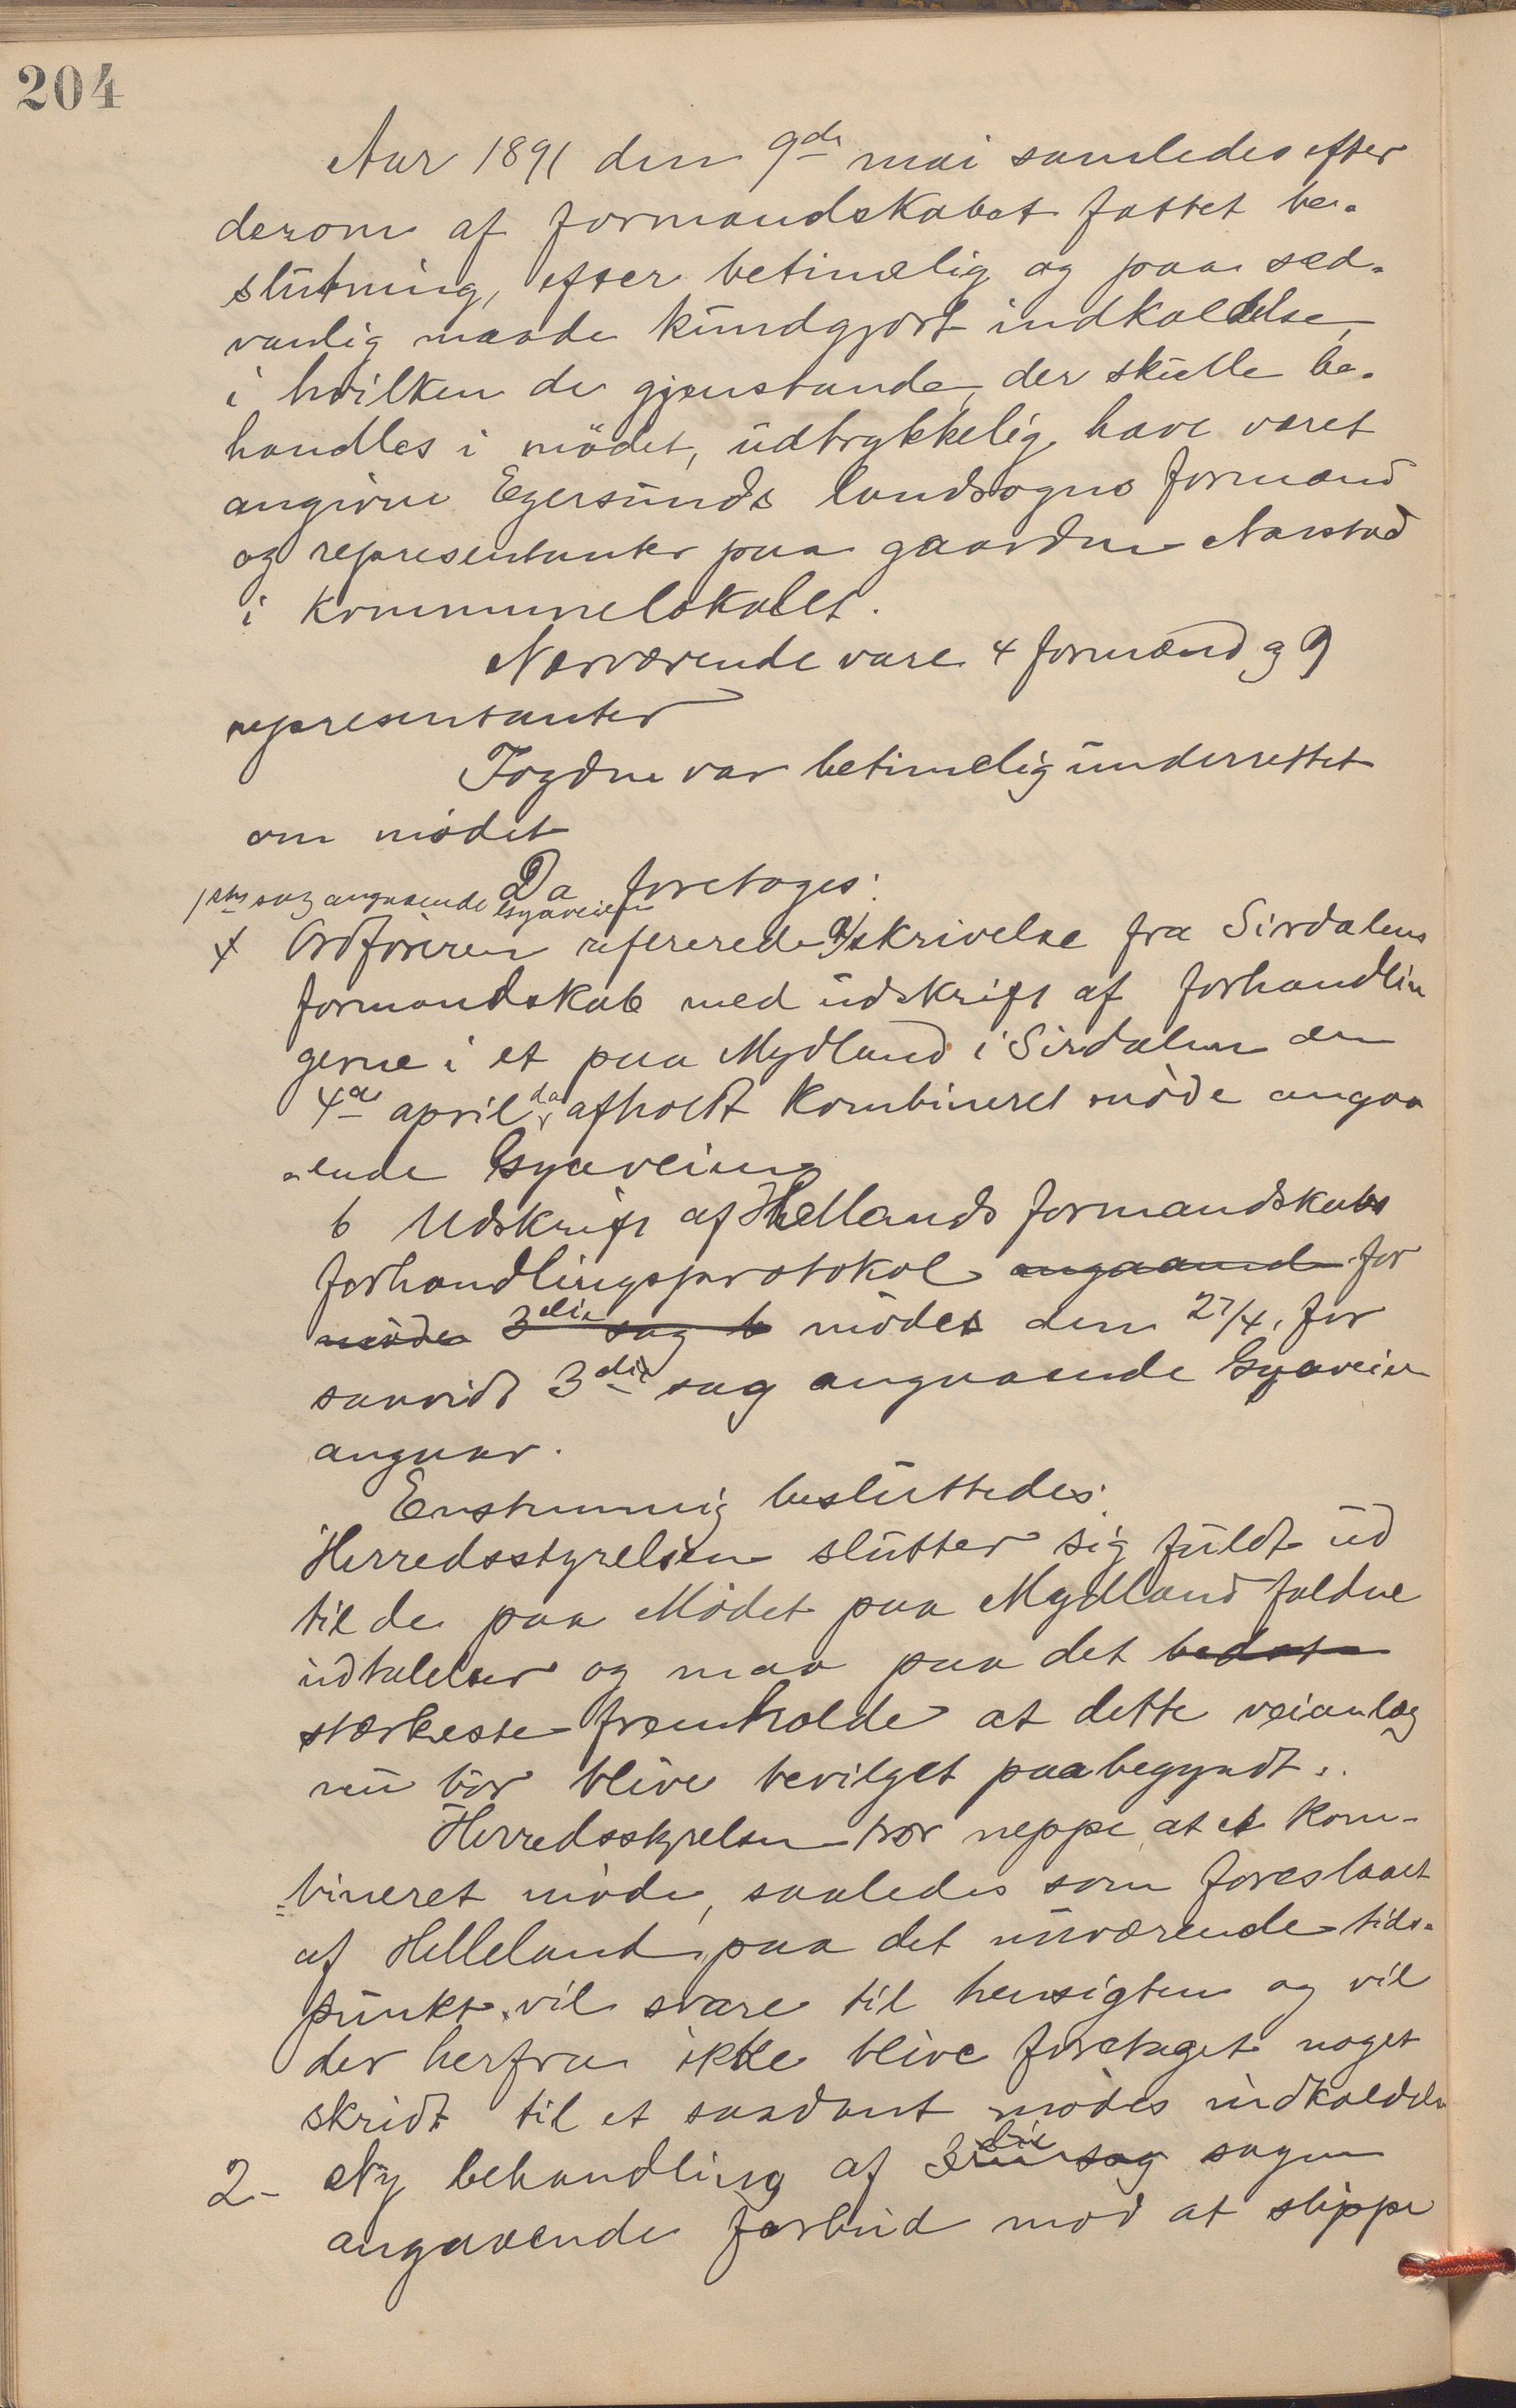 204
Aar 1891 den 9de mai samledes efter
derom af formandskabet fattet be-
slutning, efter betimelig og paa sed-
vanlig maade kundgjort indkaldelse,
i hvilken de gjenstande, der skulle be-
handles i mödet, udtrykkelig have været
angivne Egersunds landsogns formænd
og representanter paa gaarden Aarstad
i kommunelokalet.
Nærværende vare 4 formænd og 9
representanter
Fogden var betimelig underrettet
om mödet
Da foretoges:
1ste sag angaaende Gyaveien
Ordføreren refererede a/ skrivelse fra Sirdalens
formandskab med udskrift af forhandlin
gerne i et paa Mydland i Sirdalen den
4de april d.a. afholdt kombineret möde angaa
-ende Gyaveien
b Udskrift af Hellands formandskabs
forhandlingsprotokol angaaende for
möde 3die sag b mödet den 27/4, for
saavidt 3die sag angaaende Gyaveien
angaar.
Enstemmig besluttedes:
Herredsstyrelsen slutter sig fuldt ud
til de paa Mödet paa Mydland faldne
udtalelser og maa paa det bedste
stærkeste fremholde at dette veianlæg
nu bör blive bevilget paabegyndt.
Herredsstyrelsen tror neppe at et kom-
bineret möde, saaledes som foreslaaet
af Helleland, paa det nuværende tids-
punkt vil svare til hensigten og vil
der herfra ikke blive foretaget noget
skridt til et saadant mödes indkaldelse
2- Ny behandling af 3die sag sagen
angaaende forbud mod at slippe